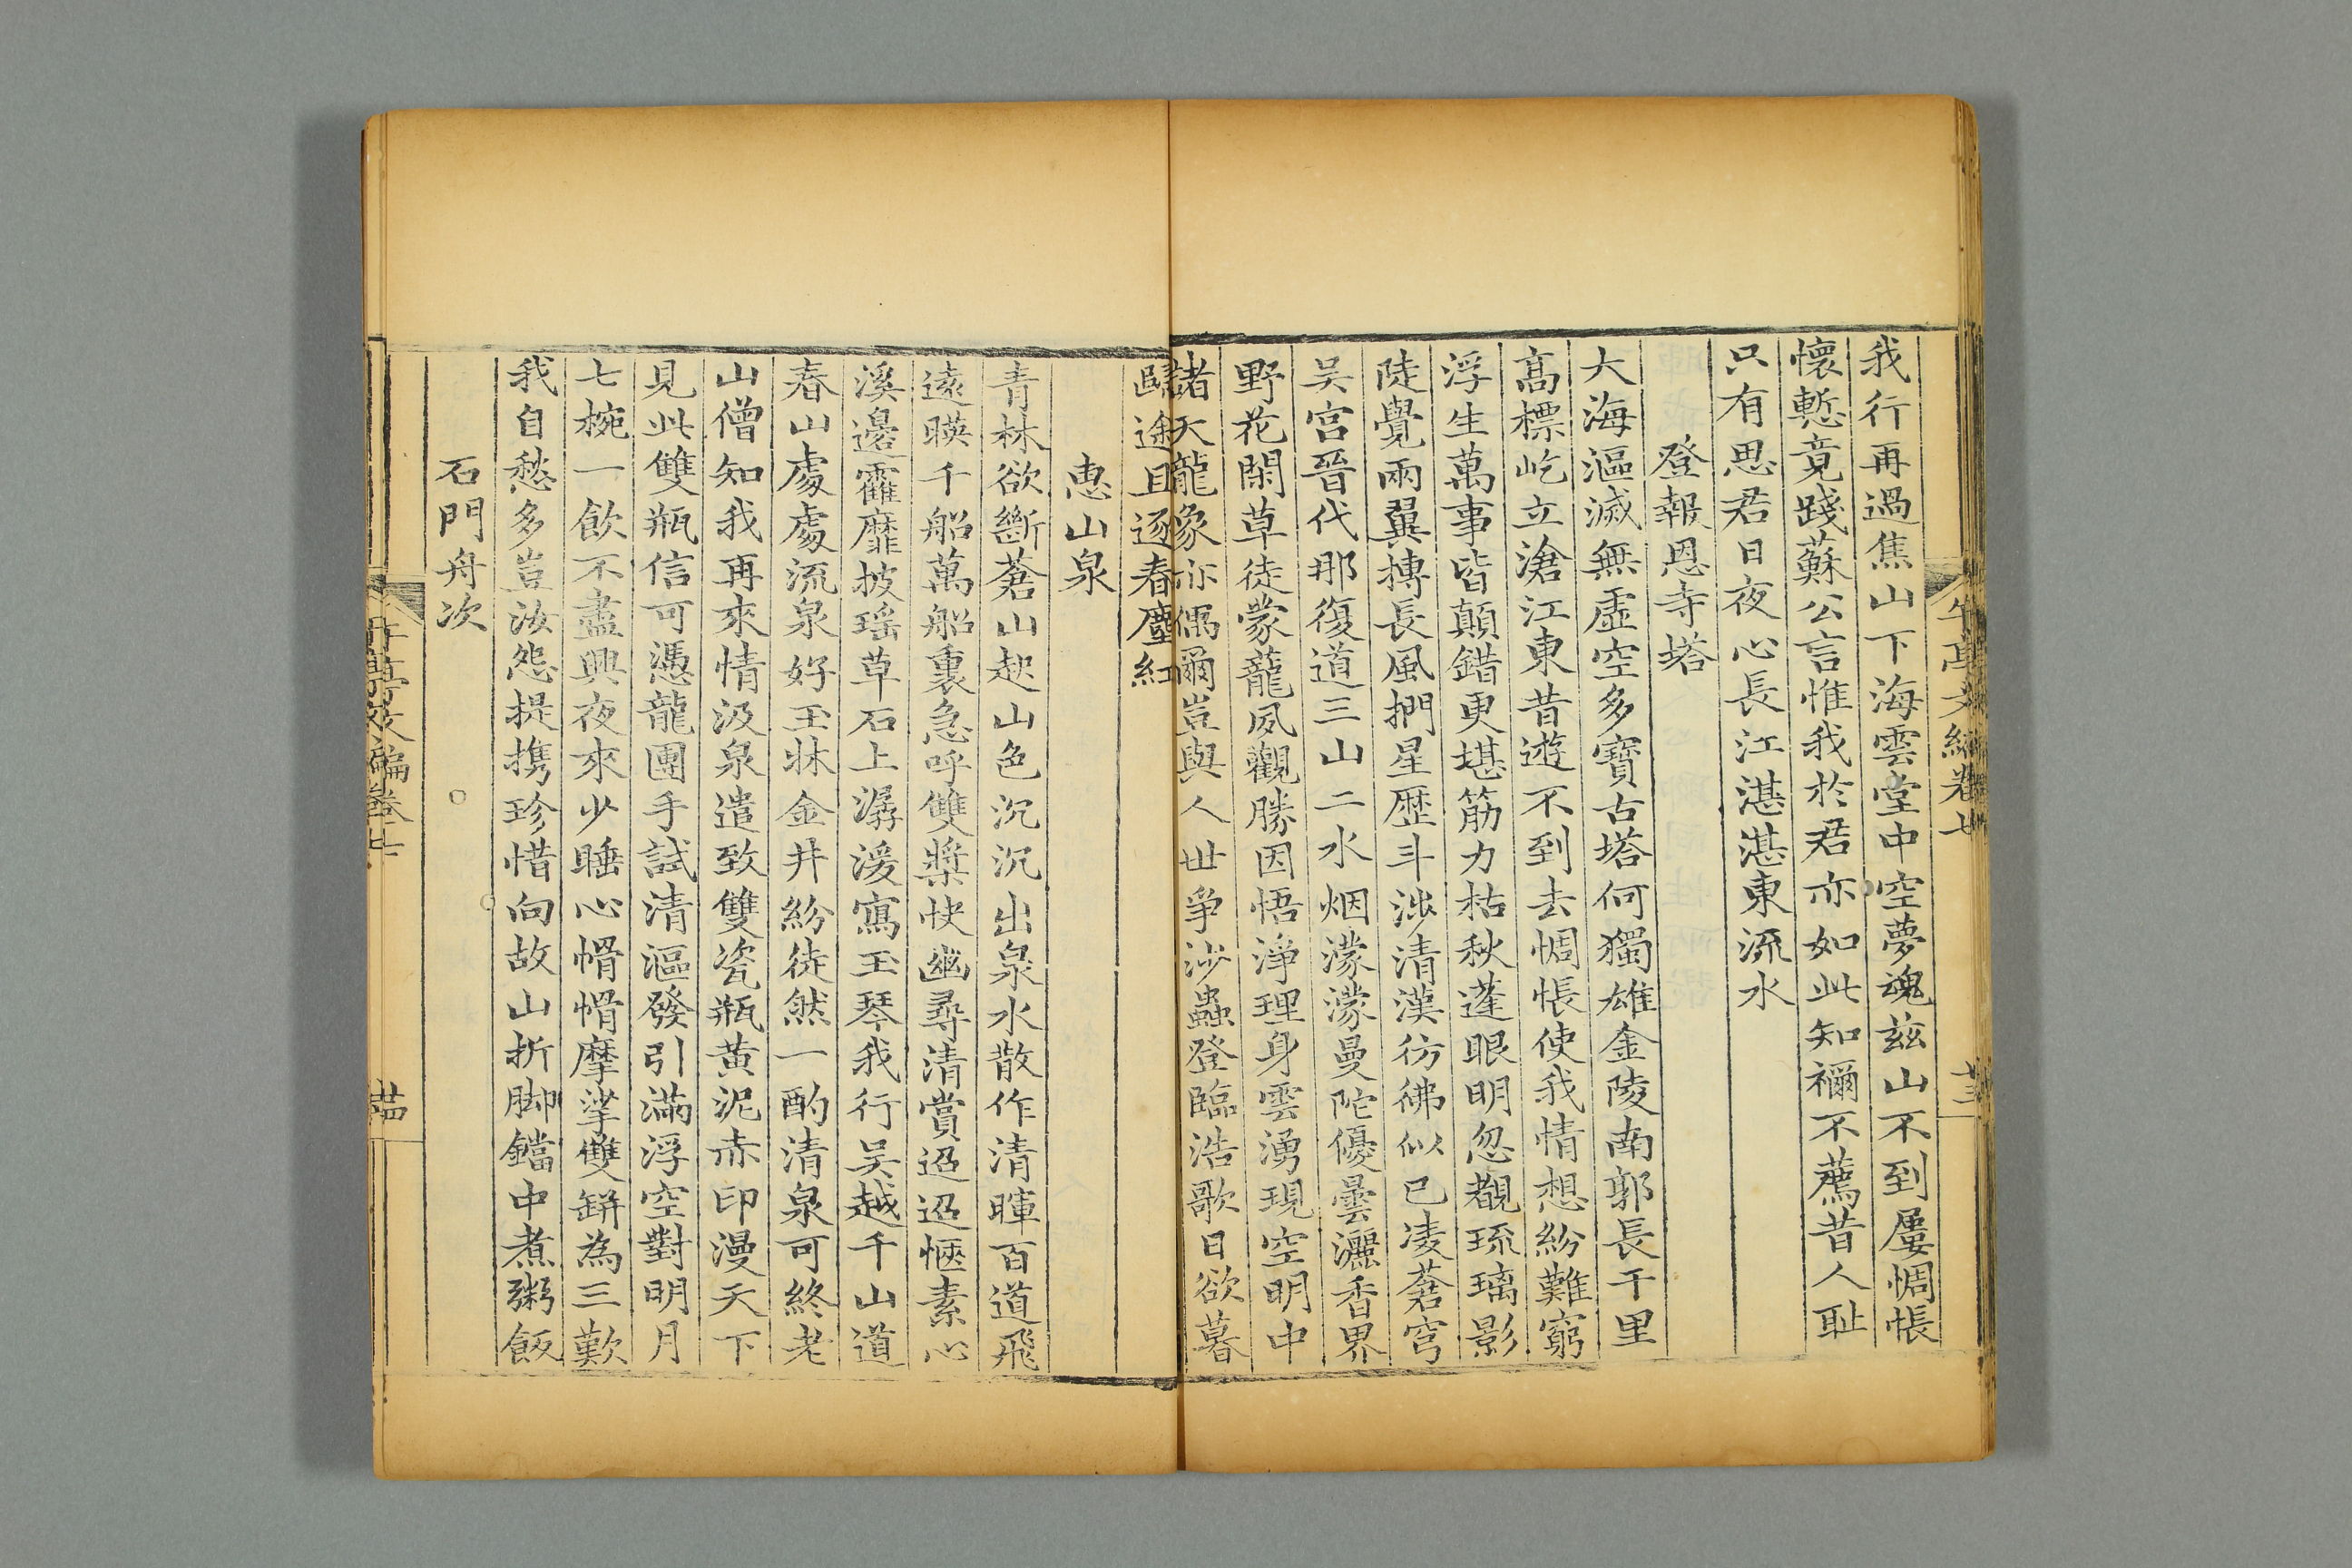 午亭文編卷七
我行再過焦山下海雲堂中空夢魂兹山不到屢惆悵
懷慙竟踐蘇公言惟我於君亦如此知禰不薦昔人恥
只有思君日夜心長江湛湛東流水
登報恩寺塔
大海漚滅無虛空多寶古塔何獨雄金陵南郭長干里
高標屹立滄江東昔遊不到去惆悵使我情想紛難窮
浮生萬事皆顛錯更堪筋力枯秋蓬眼明忽覩琉璃影
陡覺兩翼摶長風捫星歷斗涉清漢彷彿似已凌蒼穹
吴宫晉代那復道三山二水烟濛濛曼陀優曇灑香界
野花閑草徒蒙蘢夙觀勝因悟淨理身雲湧現空明中
諸天龍象亦偶爾豈與人世爭沙蟲登臨浩歌日欲暮
歸途且逐春塵紅
惠山泉
青林欲斷蒼山起山色沉沉出泉水散作清暉百道飛
遠暎千船萬船裏急呼雙槳快幽尋清賞迢迢愜素心
溪邊靃靡披瑶草石上潺湲寫玉琴我行吴越千山道
春山處處流泉好玉牀金井紛徒然一酌清泉可終老
山僧知我再來情汲泉遣致雙瓷瓶黄泥赤印漫天下
見此雙瓶信可憑龍團手試清漚發引滿浮空對明月
七椀一飲不盡興夜來少睡心愲愲摩挲雙缾為三歎
我自愁多豈汝怨提携珍惜向故山折脚鐺中煮粥飯
石門舟次
午亭文編卷七